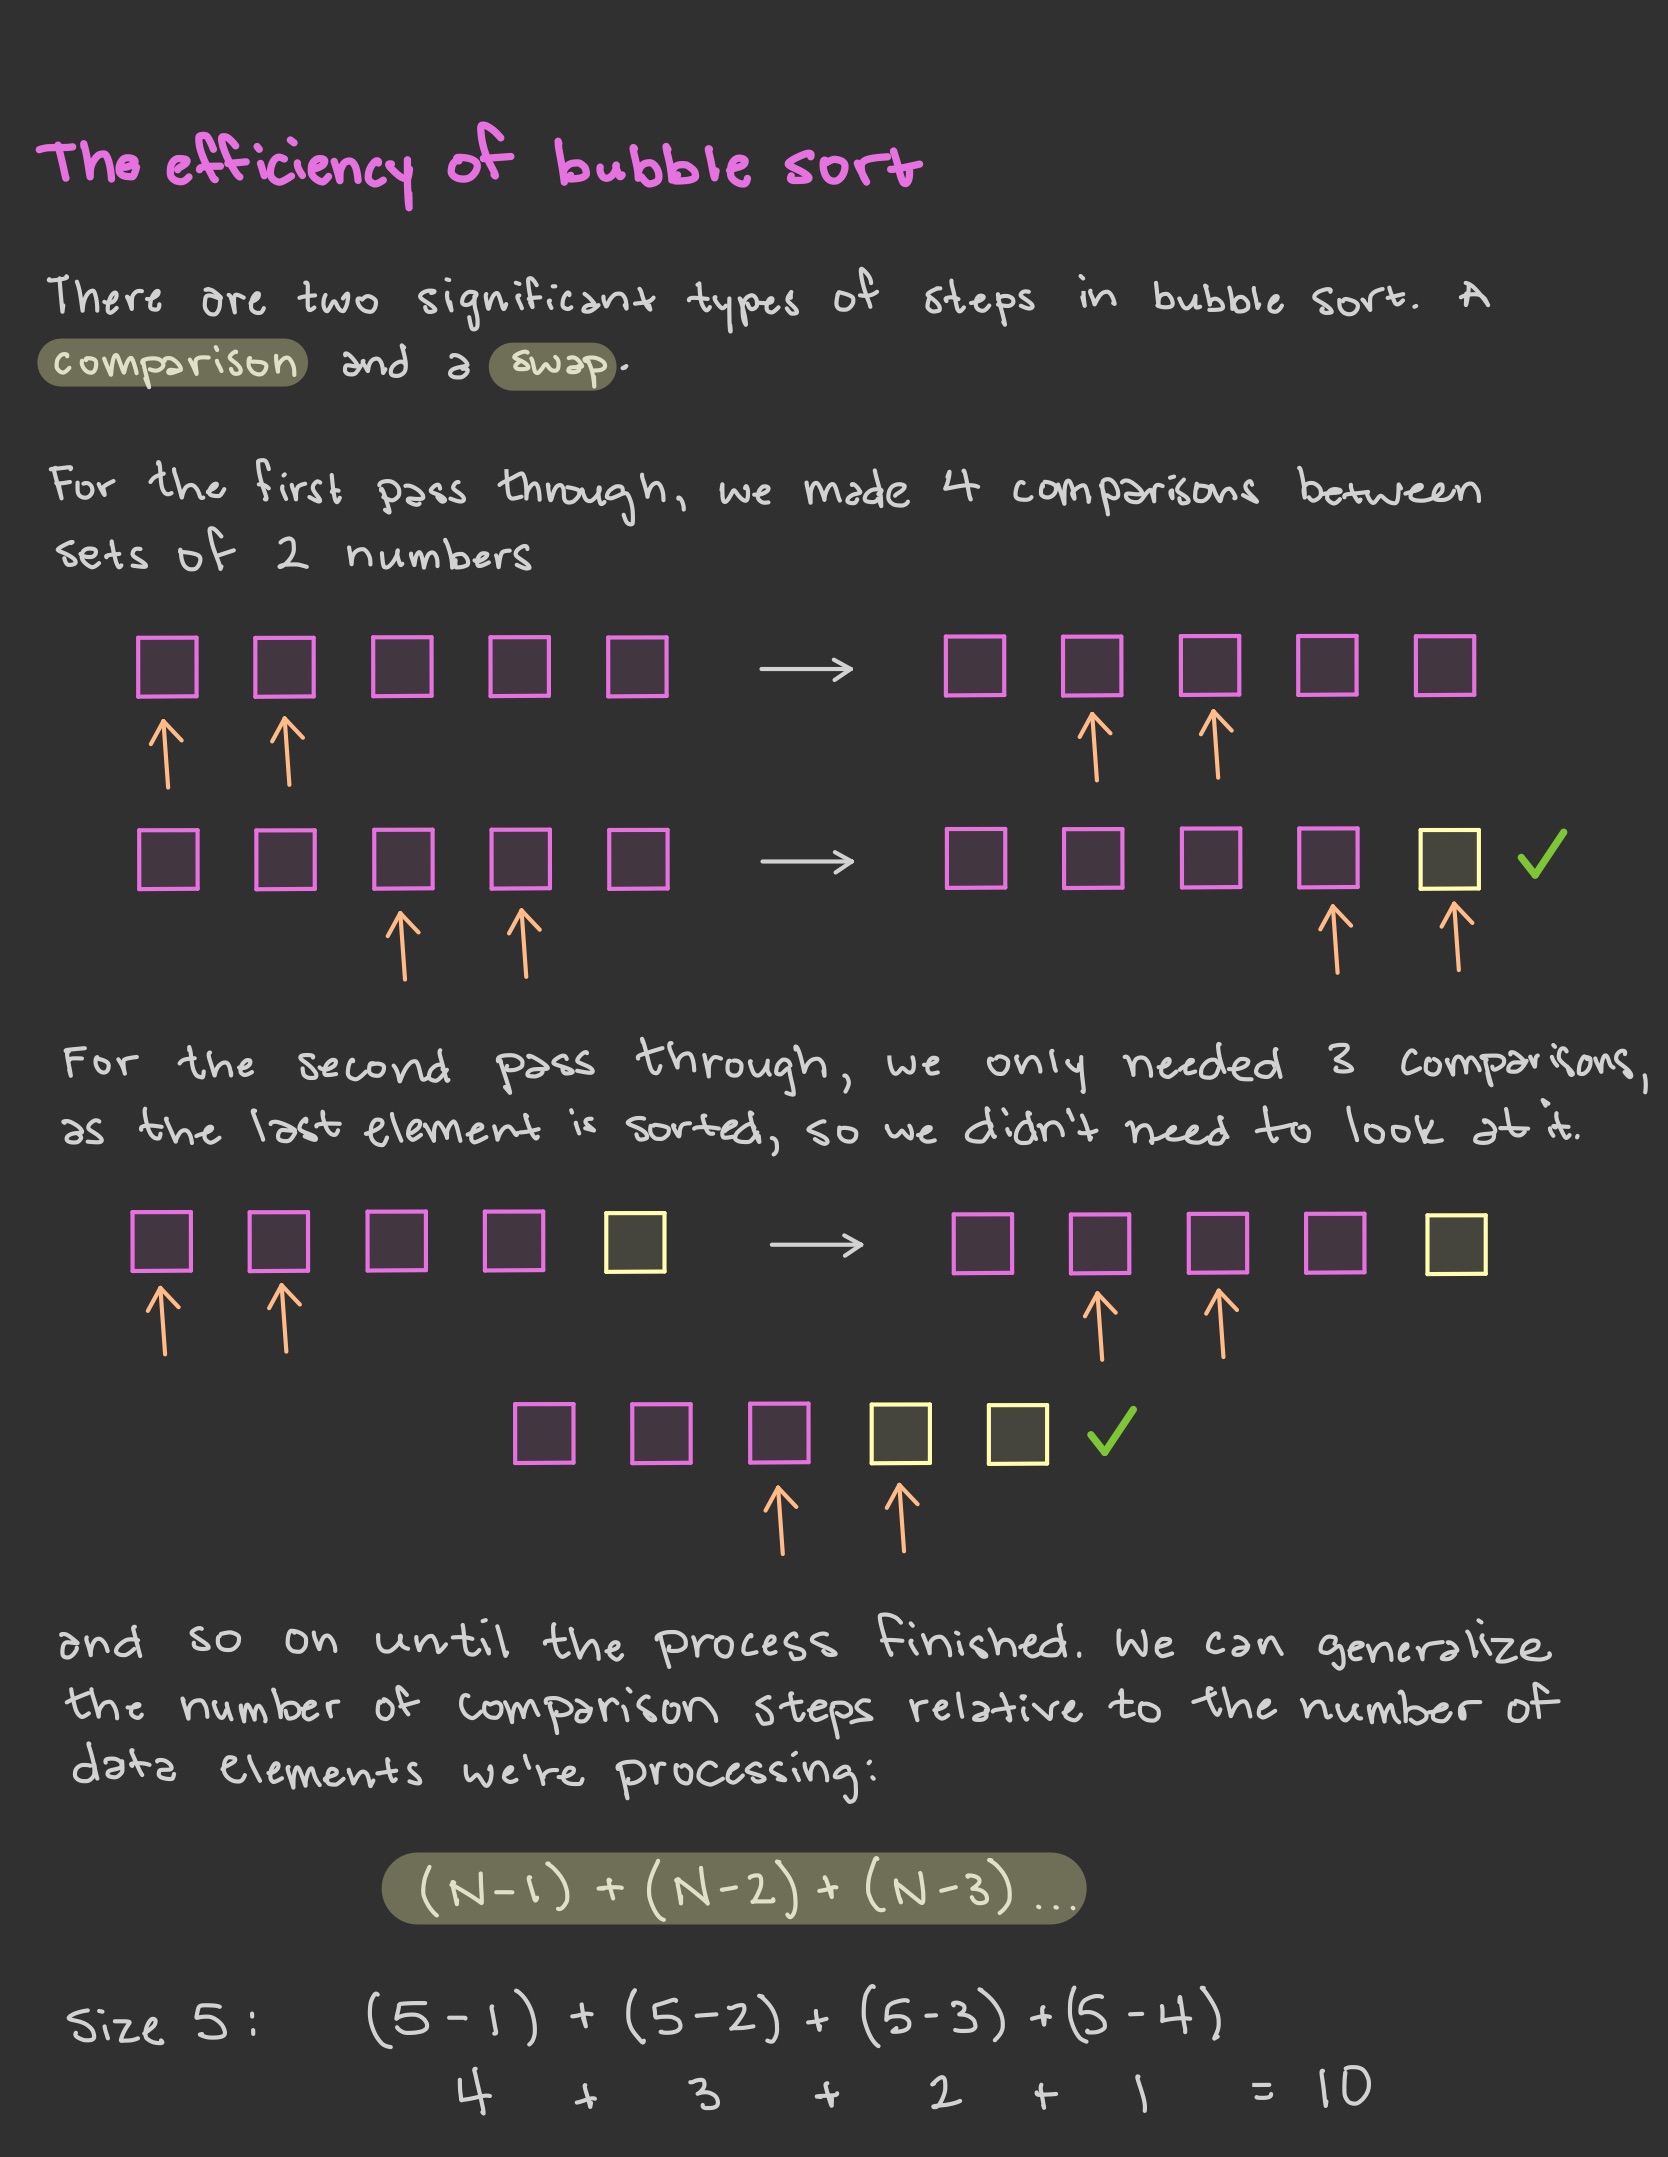 The efficiency of bubble sort
There are two significant types of steps in bubble sort. A
comparison and a swap.
For the first pass through, we made 4 comparisons between
sets of 2 numbers
For the second pass through, we only needed 3 comparisons,
as the last element is sorted, so we didn't need to look at it.
and so on until the process finished. We can generalize
the number of comparison steps relative to the number of
data elements we're processing:
(N-1) + (N-2) + (N-3) ...
Size 5: (5-1) + (5-2) + (5-3) + (5-4)
4 + 3 + 2 + 1 = 10